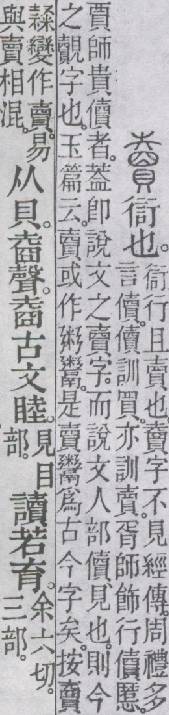 𧶠𧗳也。
𧗳行且賣也。𧶠字不見經傳。周禮多
言儥。儥訓買。亦訓賣。胥師飾行儥慝。
賈師貴儥者。蓋卽說文之𧶠字。而說文人部儥、見也。則今
之覿字也。玉篇云。𧶠或作粥鬻。是𧶠鬻爲古今字矣。按𧶠
隸變作賣。易
與賣相混。
从貝。𡍬聲。𡍬古文睦。
見目
部。
讀若育。
余六切。
三部。